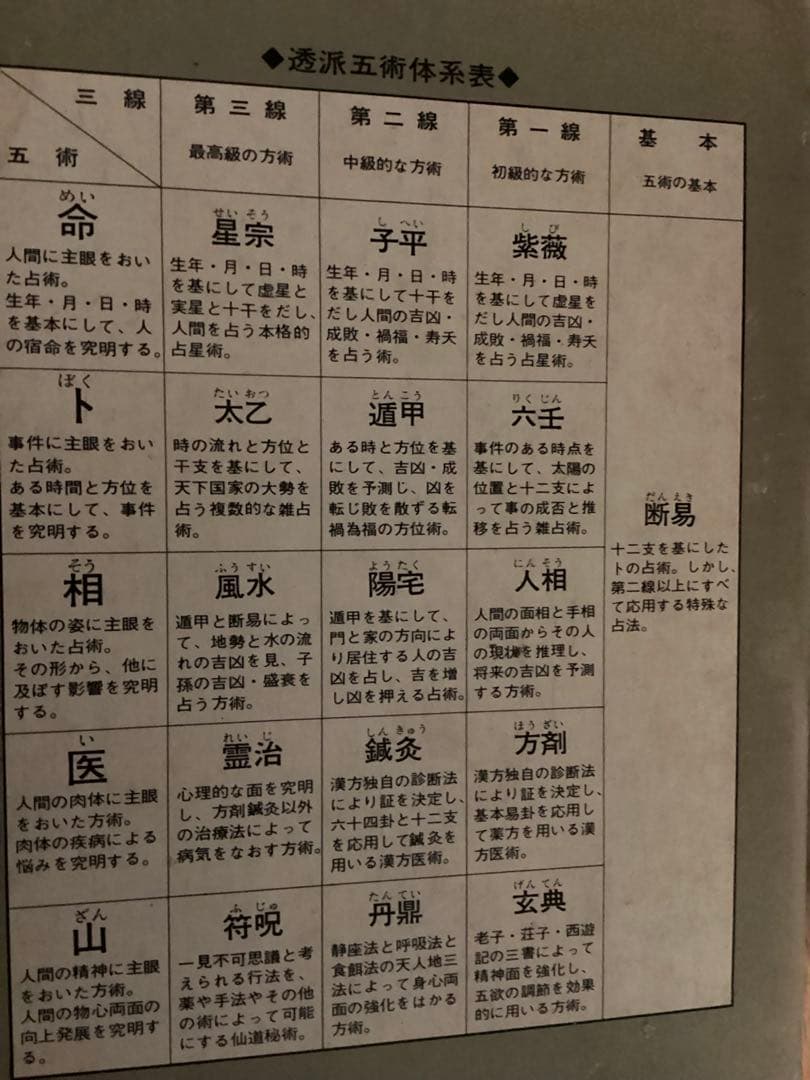 ◆透派五術体系表◆
三線
五術
第三線
最高級の方術
第二線
中級的な方術
第一線
初級的な方術
基本
五術の基本
めい
命
人間に主眼をおい
た占術。
生年・月・日・時
を基本にして、人
の宿命を究明する。
せいそう
星宗
生年・月・日・時
を基にして虚星と
実星と十干をだし、
人間を占う本格的
占星術。
しへい
子平
生年・月・日・時
を基にして十干を
だし人間の吉凶・
成敗・禍福・寿夭
を占う術。
しび
紫薇
生年・月・日・時
を基にして虚星を
だし人間の吉凶・
成敗・禍福・寿夭
を占う占星術。
ぼく
卜
事件に主眼をおい
た占術。
ある時間と方位を
基本にして、事件
を究明する。
たいおつ
太乙
時の流れと方位と
干支を基にして、
天下国家の大勢を
占う複数的な雑占
術。
とんこう
遁甲
ある時と方位を基
にして、吉凶・成
敗を予測し、凶を
転じ敗を散ずる転
禍為福の方位術。
りくじん
六壬
事件のある時点を
基にして、太陽の
位置と十二支によ
って事の成否と推
移を占う雑占術。
だんえき
断易
十二支を基にした
卜の占術。しかし、
第二線以上にすべ
て応用する特殊な
占法。
そう
相
物体の姿に主眼を
おいた占術。
その形から、他に
及ぼす影響を究明
する。
ふうすい
風水
遁甲と断易によっ
て、地勢と水の流
れの吉凶を見、子
孫の吉凶・盛衰を
占う方術。
ようたく
陽宅
遁甲を基にして、
門と家の方向によ
り居住する人の吉
凶を占し、吉を増
し凶を押える占術。
にんそう
人相
人間の面相と手相
の両面からその人
の現状を推理し、
将来の吉凶を予測
する方術。
い
医
人間の肉体に主眼
をおいた方術。
肉体の疾病による
悩みを究明する。
れいじ
霊治
心理的な面を究明
し、方剤鍼灸以外
の治療法によって
病気をなおす方術。
しんきゅう
鍼灸
漢方独自の診断法
により証を決定し、
六十四卦と十二支
を応用して鍼灸を
用いる漢方医術。
ほうざい
方剤
漢方独自の診断法
により証を決定し、
基本易卦を応用し
て薬方を用いる漢
方医術。
ざん
山
人間の精神に主眼
をおいた方術。
人間の物心両面の
向上発展を究明す
る。
ふじゅ
符呪
一見不可思議と考
えられる行法を、
薬や手法やその他
の術によって可能
にする仙道秘術。
たんてい
丹鼎
静座法と呼吸法と
食餌法の天人地三
法によって身心両
面の強化をはかる
方術。
げんてん
玄典
老子・荘子・西遊
記の三書によって
精神面を強化し、
五欲の調節を効果
的に用いる方術。